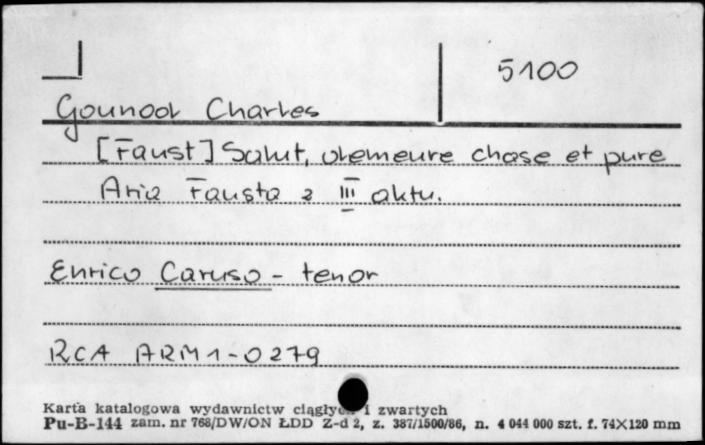 5100
Gounod Charles
[Faust] Salut, demeure chase et pure
Aria Fausta z III aktu.
Enrico Caruso - tenor
RCA ARM1-0279
Karta katalogowa wydawnictw ciągłych i zwartych
Pu-B-144 zam. nr 768/DW/ON ŁDD Z-d 2, z. 387/1500/86, n. 4 044 000 szt. f. 74X120 mm